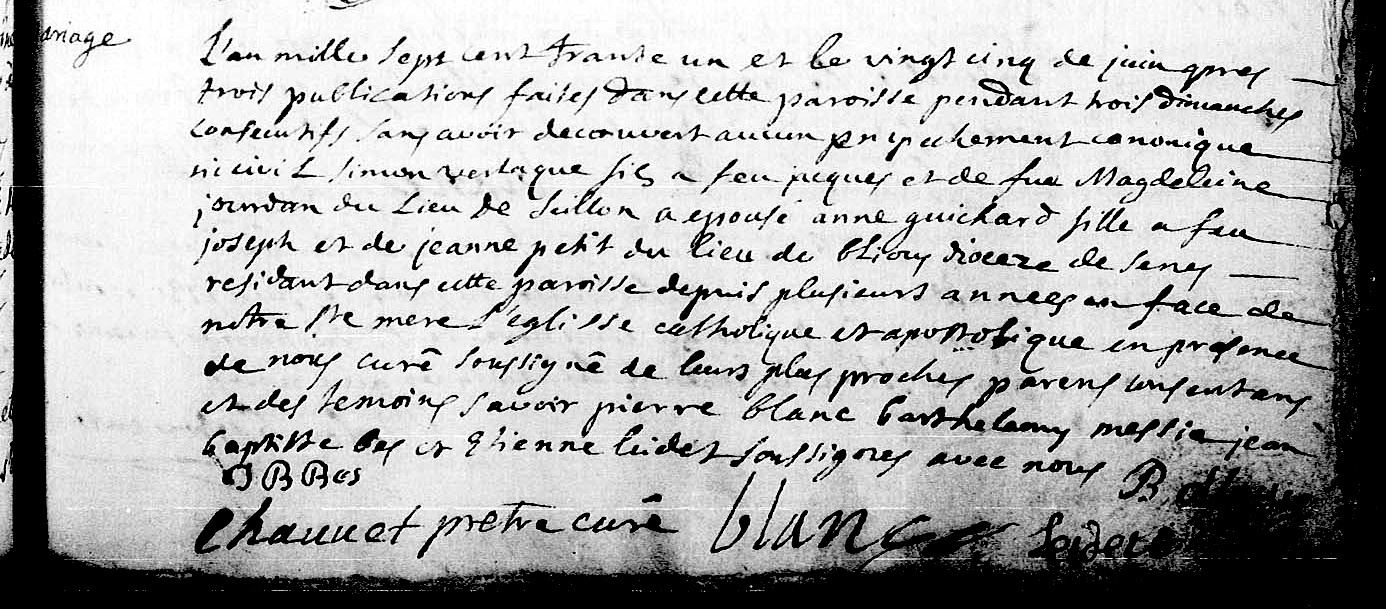 mariage
L'an mille sept cent trante un et le vingt cinq de juin apres
trois publications faites dans cette paroisse pendant trois dimanches
consecutifs sans avoir decouvert aucun empechement canonique
ni civil Simon verlaque fils a feu jaques et de fue Magdeleine
jourdan du Lieu de Seillon a epousé anne guichard fille a feu
joseph et de jeanne petit du lieu de blioux dioceze de senes
residant dans cette paroisse depuis plusieurs annees en face de
notre ste mere L'eglisse catholique et apostolique en presence
de nous curé soussigné de leurs plus proches parens consentans
et des temoins savoir pierre blanc barthelemy messie jean
baptiste bes et Etienne leidet soussignes avec nous
J B Bes
chauvet pretre curé blanc Leydet